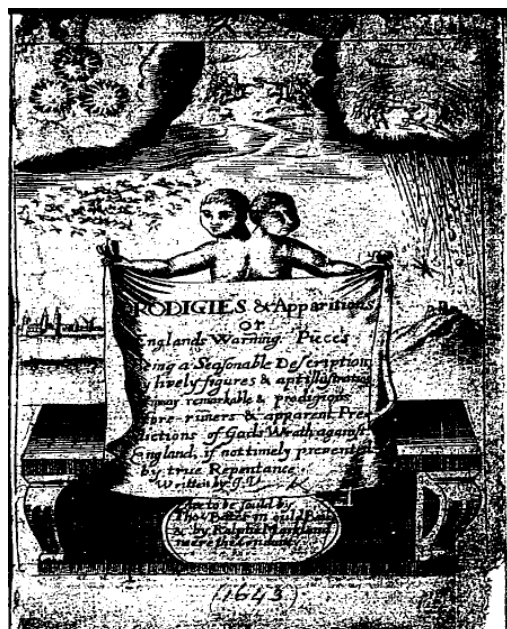 RODIGIES & Apparitions
or
nglands Warning. Pieces
eing a Seasonable Description
lively figures & apt illustration
many remarkable & prodigious
fore-runers & apparent Pre-
dictions of Gods Wrath against
England, if not timely prevented
by true Repentance.
Written by J. V
are to be sould by
Tho: Bates in
& by Ralphe Markland
(1643)